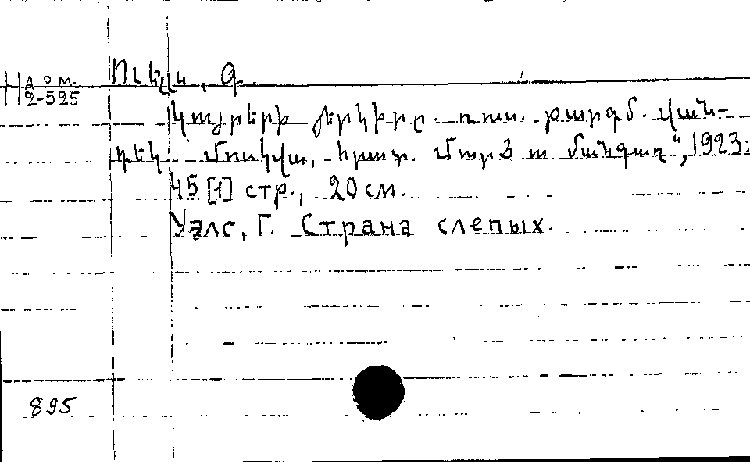 Ուելս, Գ.
А о м.
2-525
Կույրերի յերկիրը. ռուս. թարգմ. Վան-
դեկ. Մոսկվա, հրատ. Մուրճ ու մանգաղ", 1923:
45 [1] стр., 20 см.
Уэлс, Г. Страна слепых.
895